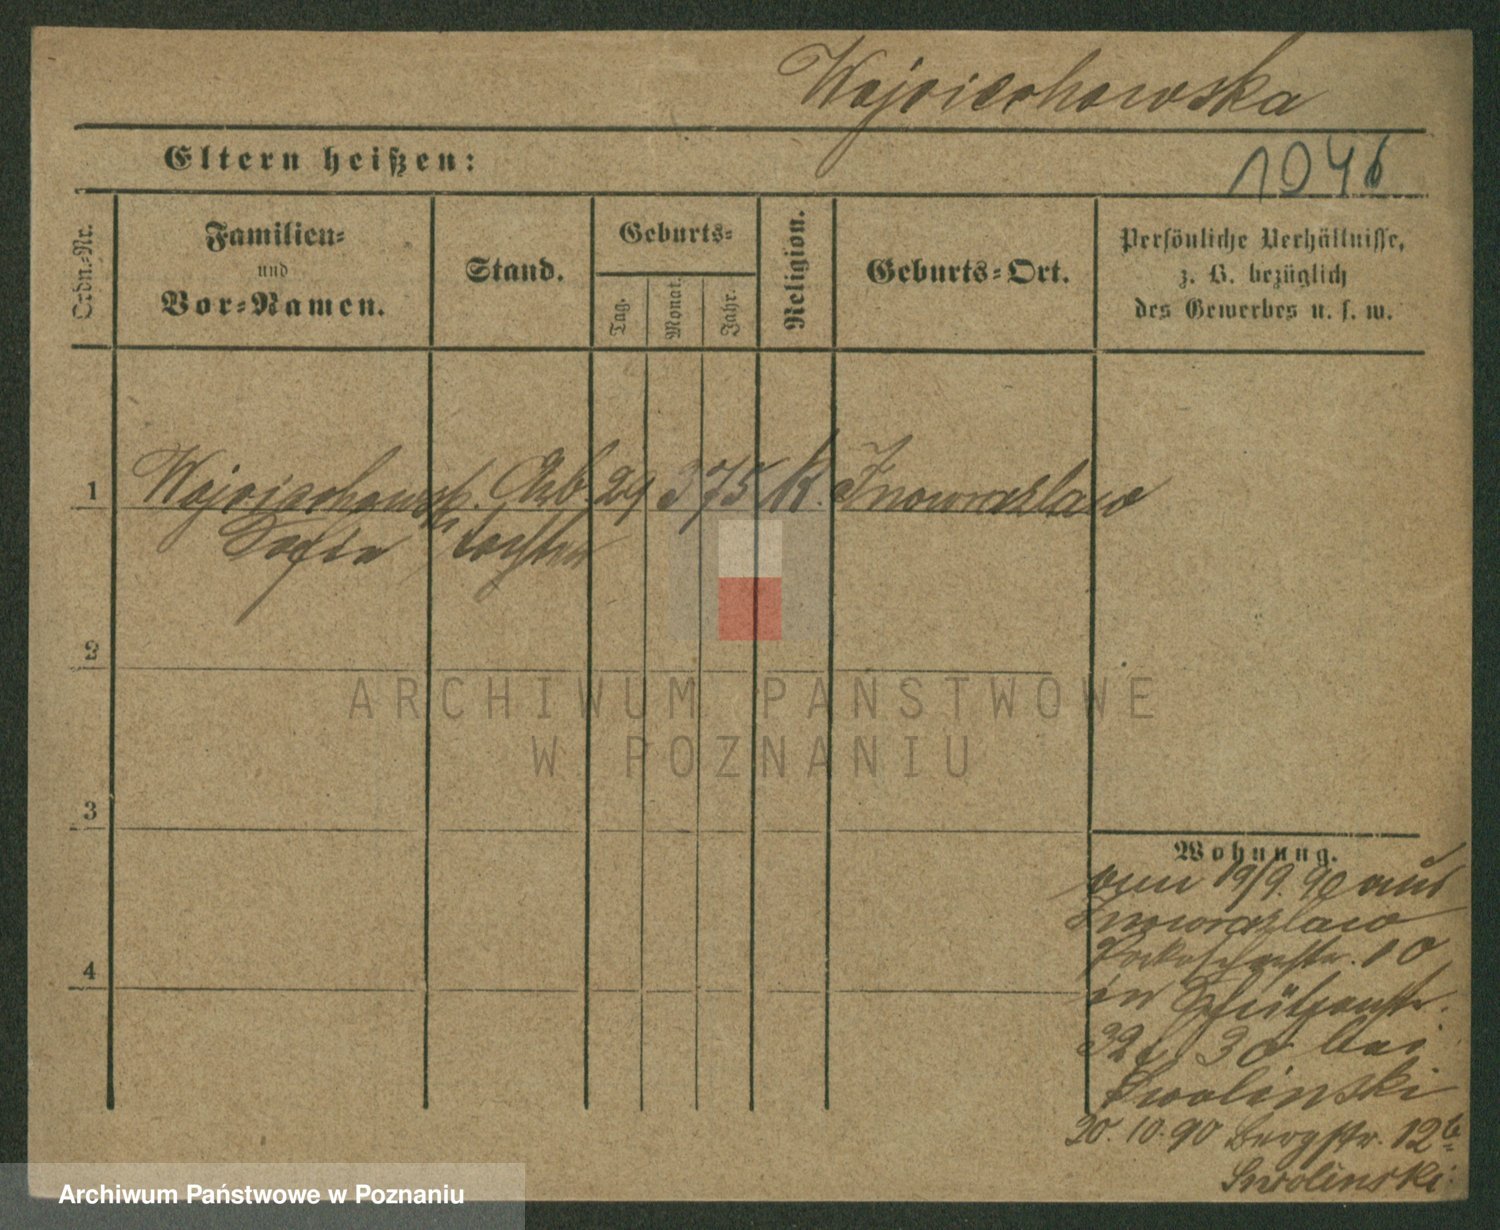 Wojciechowska
Eltern heißen:
1046
Ordn.-Nr.
Familien-
und
Vor-Namen.
Stand.
Geburts-
Tag.
Monat.
Jahr.
Religion.
Geburts-Ort.
Persönliche Verhältnisse,
z. B. bezüglich
des Gewerbes u. s. w.
1 Arb. 29 3 75 K. Inowrazlaw
Sofia tochter
2
3
4
Wohnung.
19/9. 90 aus
Inowrazlaw
10
in Schützenstr.
bei
Swolinski
20. 10. 90 Bergstr. 12b
Swolinski
ARCHIWUM PAŃSTWOWE
W POZNANIU
Archiwum Państwowe w Poznaniu